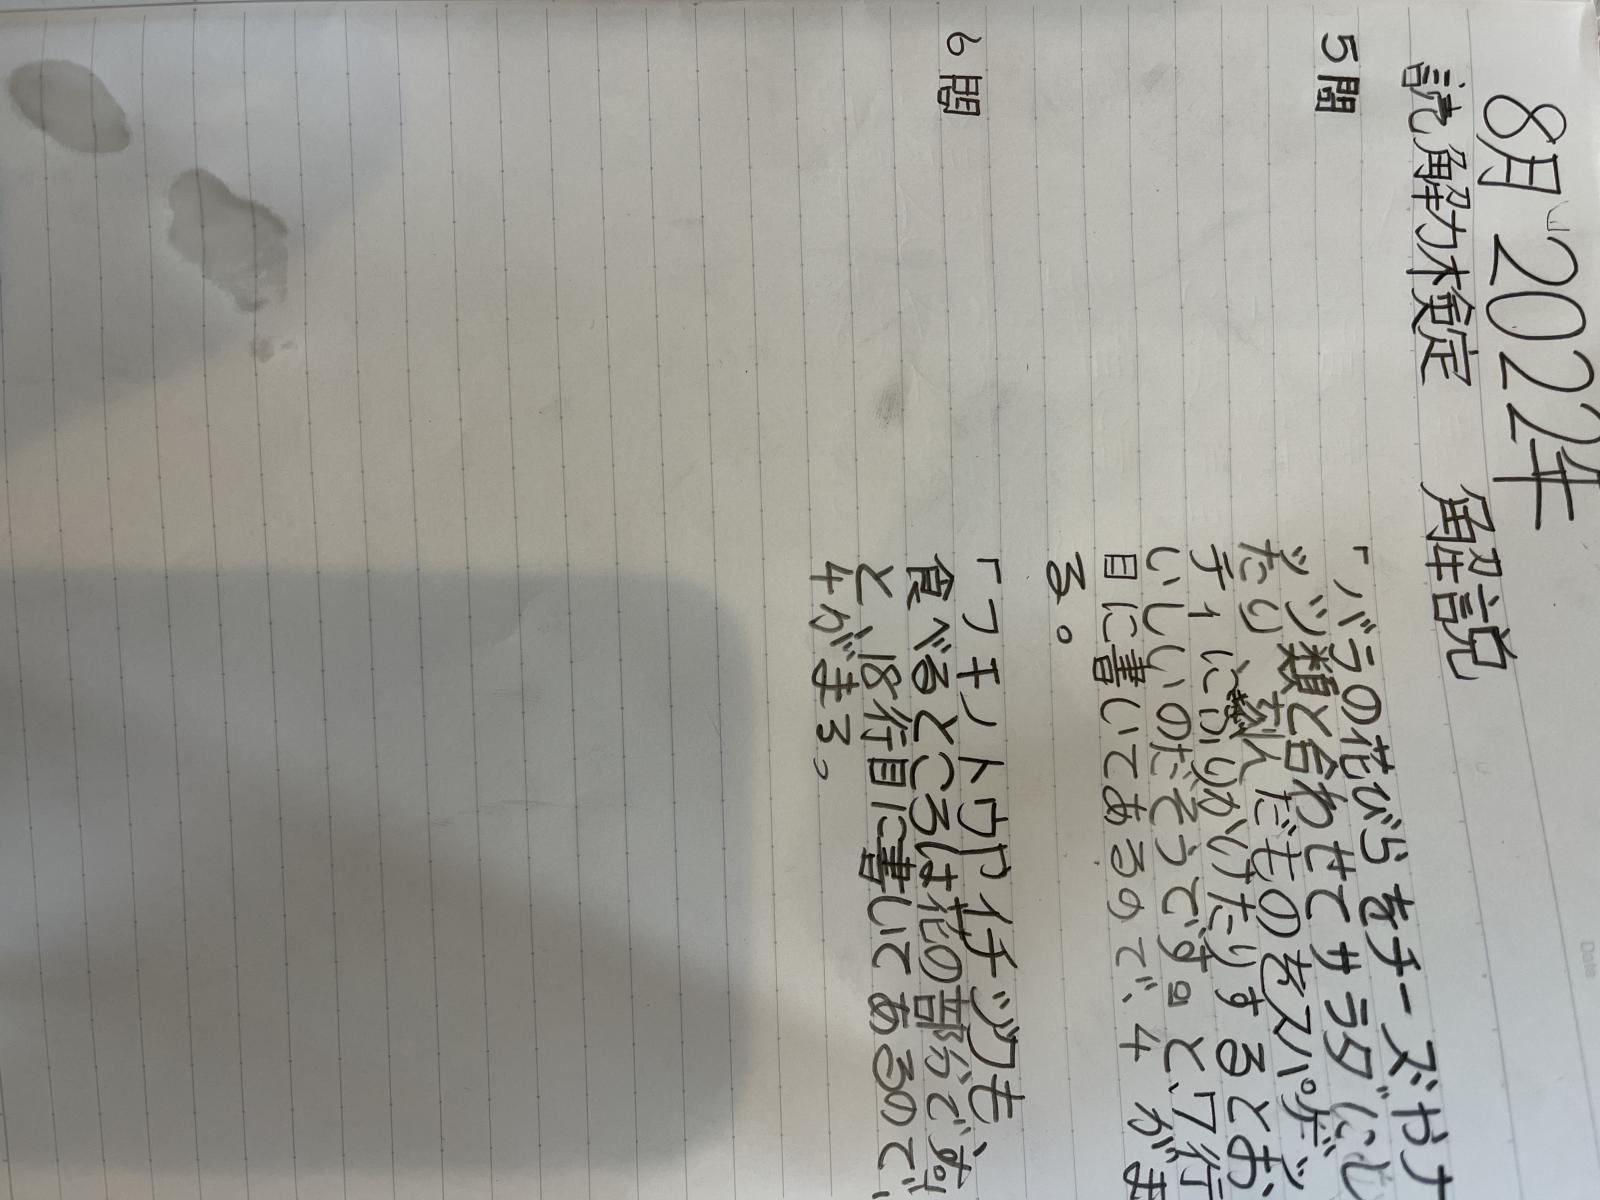 8月 2022年
読解力検定 解説
5問
「バラの花びらをチーズやナ
ッツ類と合わせてサラダにし
たり、刻んだものをスパゲッ
ティにふりかけたりするとお
いしいのだそうです」と、7行
目に書いてあるので、4がま
る。
6問
「フキノトウやイチジクも、
食べるところは花の部分です」
と、18行目に書いてあるので、
4がまる。
Date